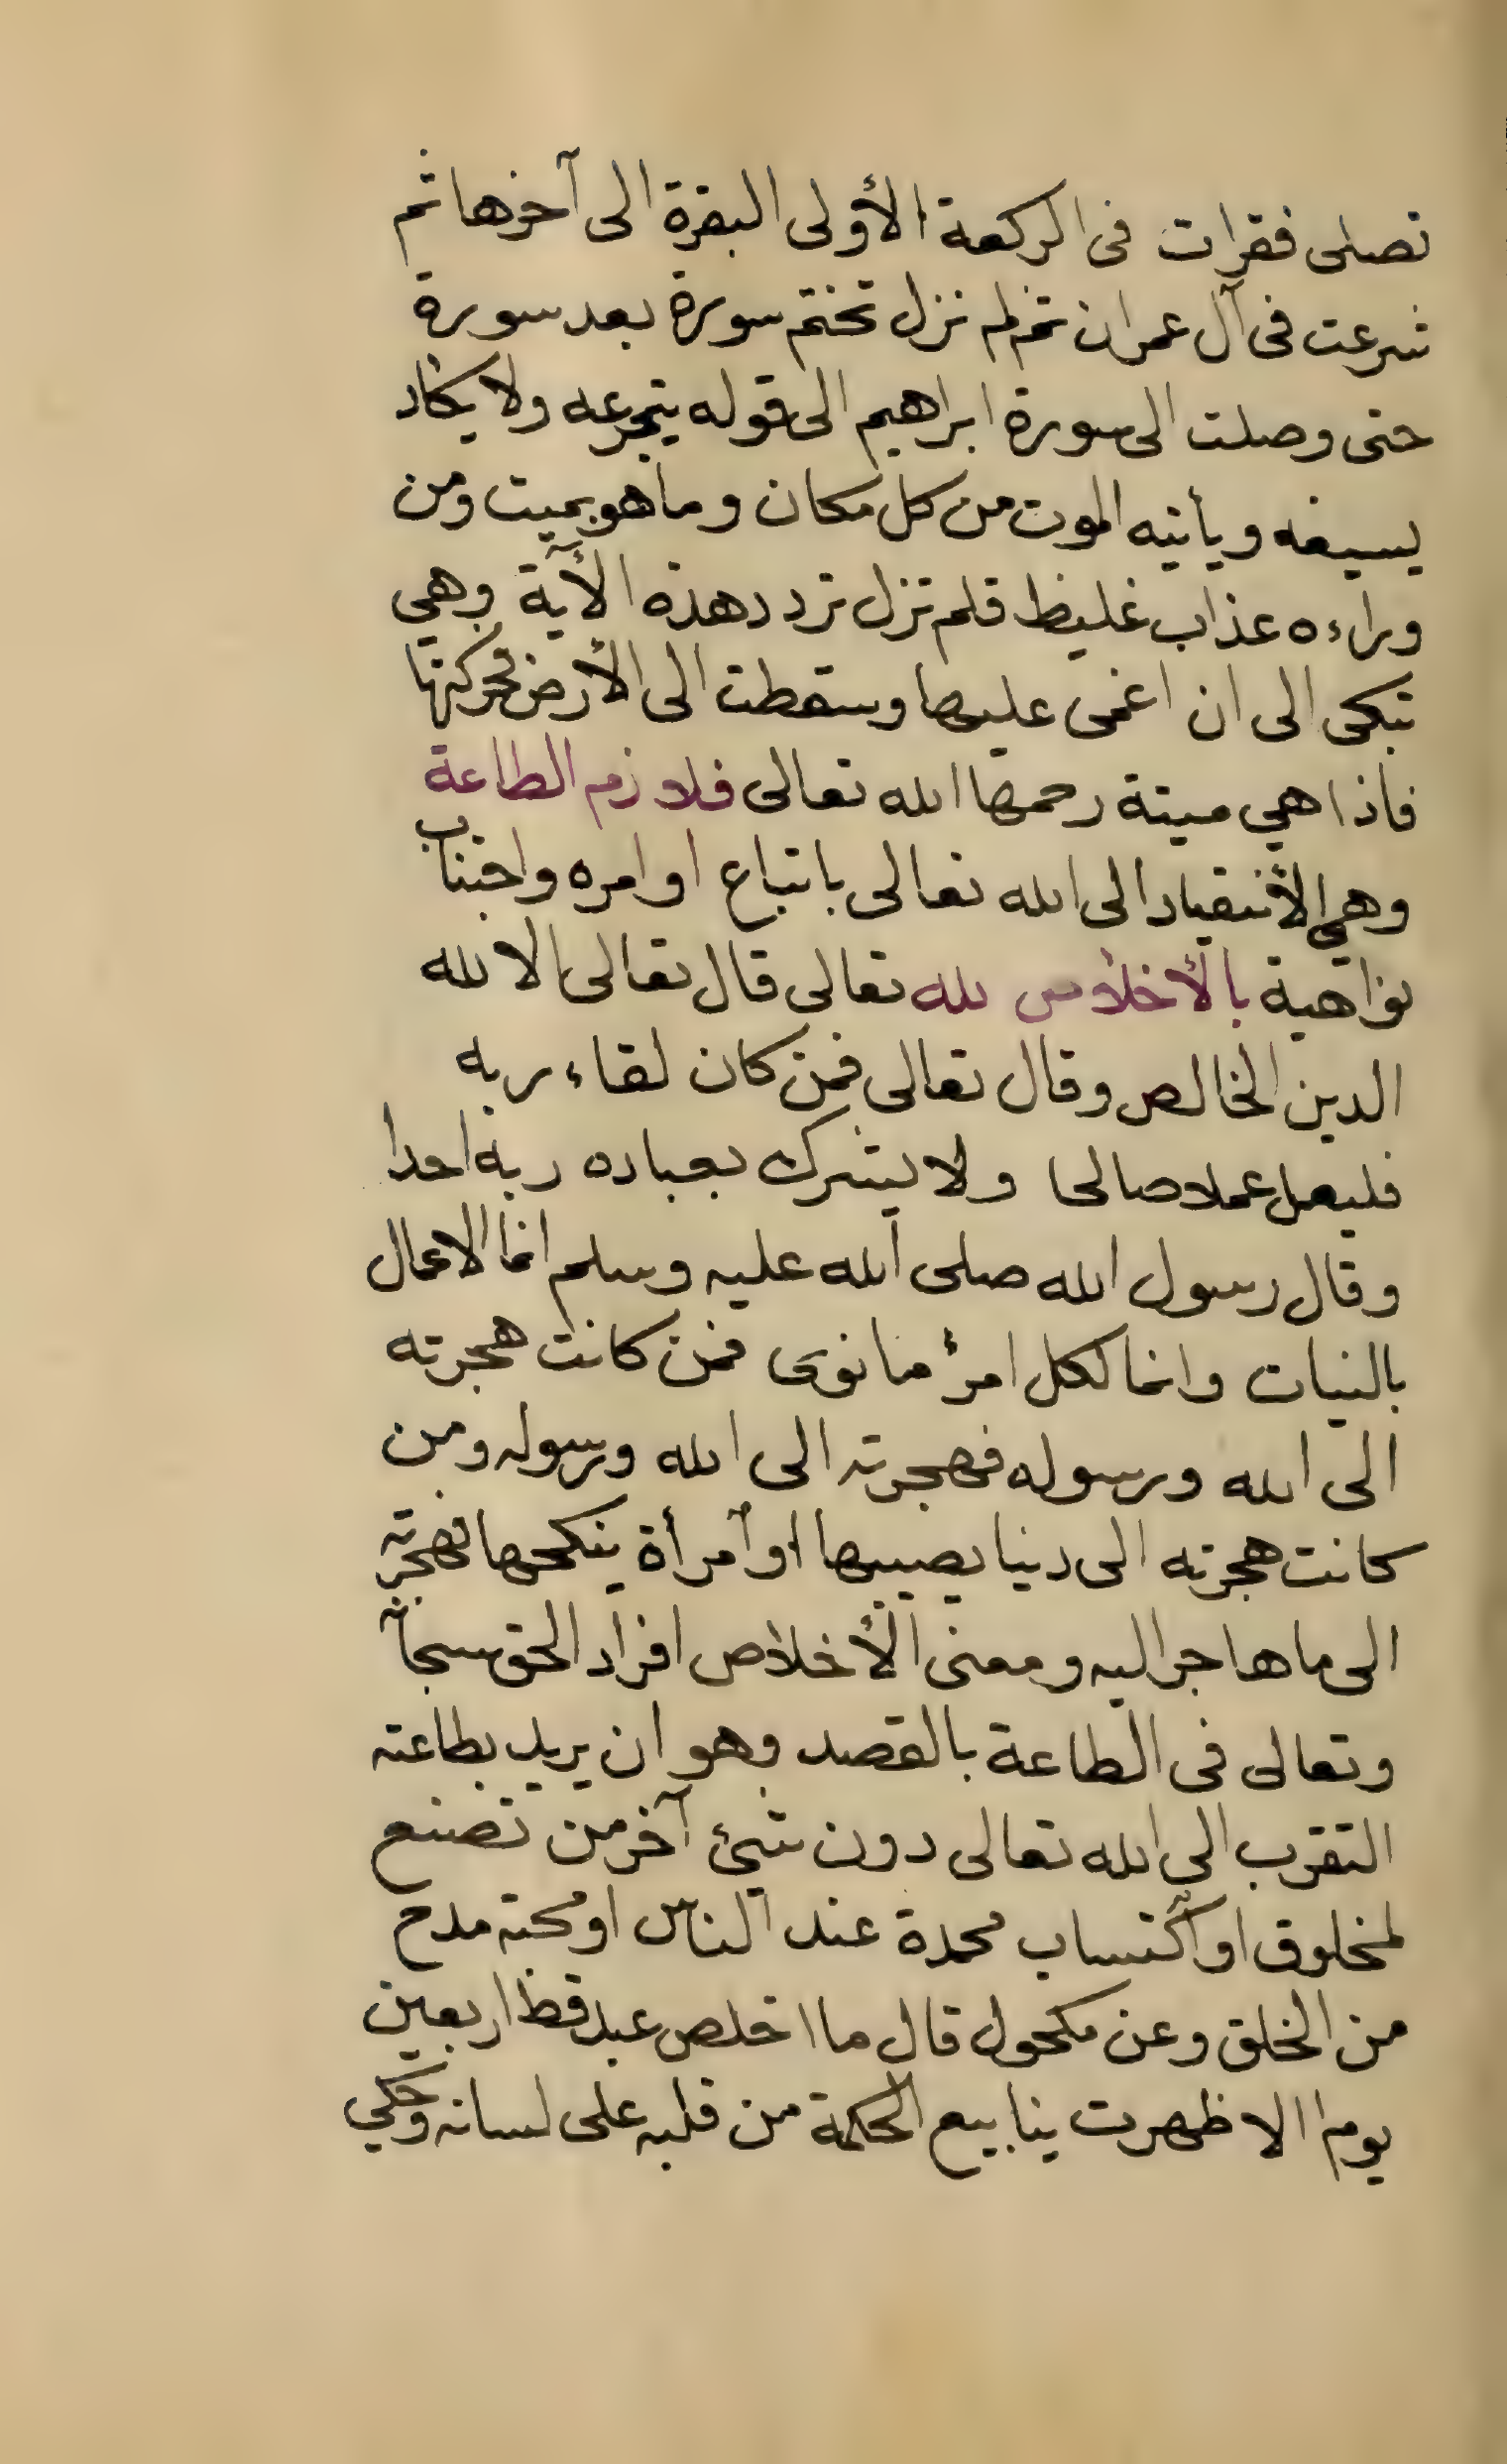 تصلى فقرات فى الركعة الأولى البقرة الى آخرها ثم
شرعت فى آل عمران ثم لم تزل تختم سورة بعد سورة
حتى وصلت الى سورة ابراهيم الى قوله يتجرعه ولا يكاد
يسيغه ويأتيه الموت من كل مكان وما هو بميت ومن
وراءه عذاب غليظ فلم تزل تردد هذه الأية وهي
تبكى الى ان اغمى عليها وسقطت الى الأرض فحركتها
فاذا هي ميتة رحمها الله تعالى فلازم الطاعة
وهي الأنقياد الى الله تعالى باتباع اوامره واجتناب
نواهية بالأخلاص لله تعالى قال تعالى الا لله
الدين الخالص وقال تعالى فمن كان لقاء ربه
فليعمل عملا صالحا ولا يشرك بعباده ربه احدا
وقال رسول الله صلى الله عليه وسلم انما الاعمال
بالنيات وانما لكل امرئ ما نوى فمن كانت هجرته
الى الله ورسوله فهجرته الى الله ورسوله ومن
كانت هجرته الى دنيا يصيبها او أمرأة ينكحها فهجرته
الى ما هاجر اليه ومعنى الأخلاص افراد الحق سبحا
وتعالى فى الطاعة بالقصد وهو ان يريد بطاعته
التقرب الى الله تعالى دون شئ آخر من تصنع
لمخلوق او أكتساب محمدة عند الناس او محبة مدح
من الخلق وعن مكحول قال ما اخلص عبد قط اربعين
يوما الا ظهرت ينابيع الحكمة من قلبه على لسانه وحكي